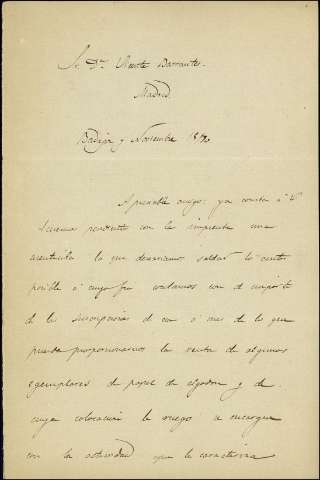 Sr. Dn. Vicente Barrantes.
Madrid.
Badajoz 9 Noviembre 1870
Apreciable amigo: ya consta á V.
tenemos pendiente con la imprenta una
cuentecita la que deseamos saldar lo antes
posible á cuyo fin contamos con el importe
de la suscripcion de ese ó mas de lo que
pueda proporcionarnos la venta de algunos
egemplares de papel de algodon y de
cuya colocacion le ruego se encargue
con la actividad que le caracteriza